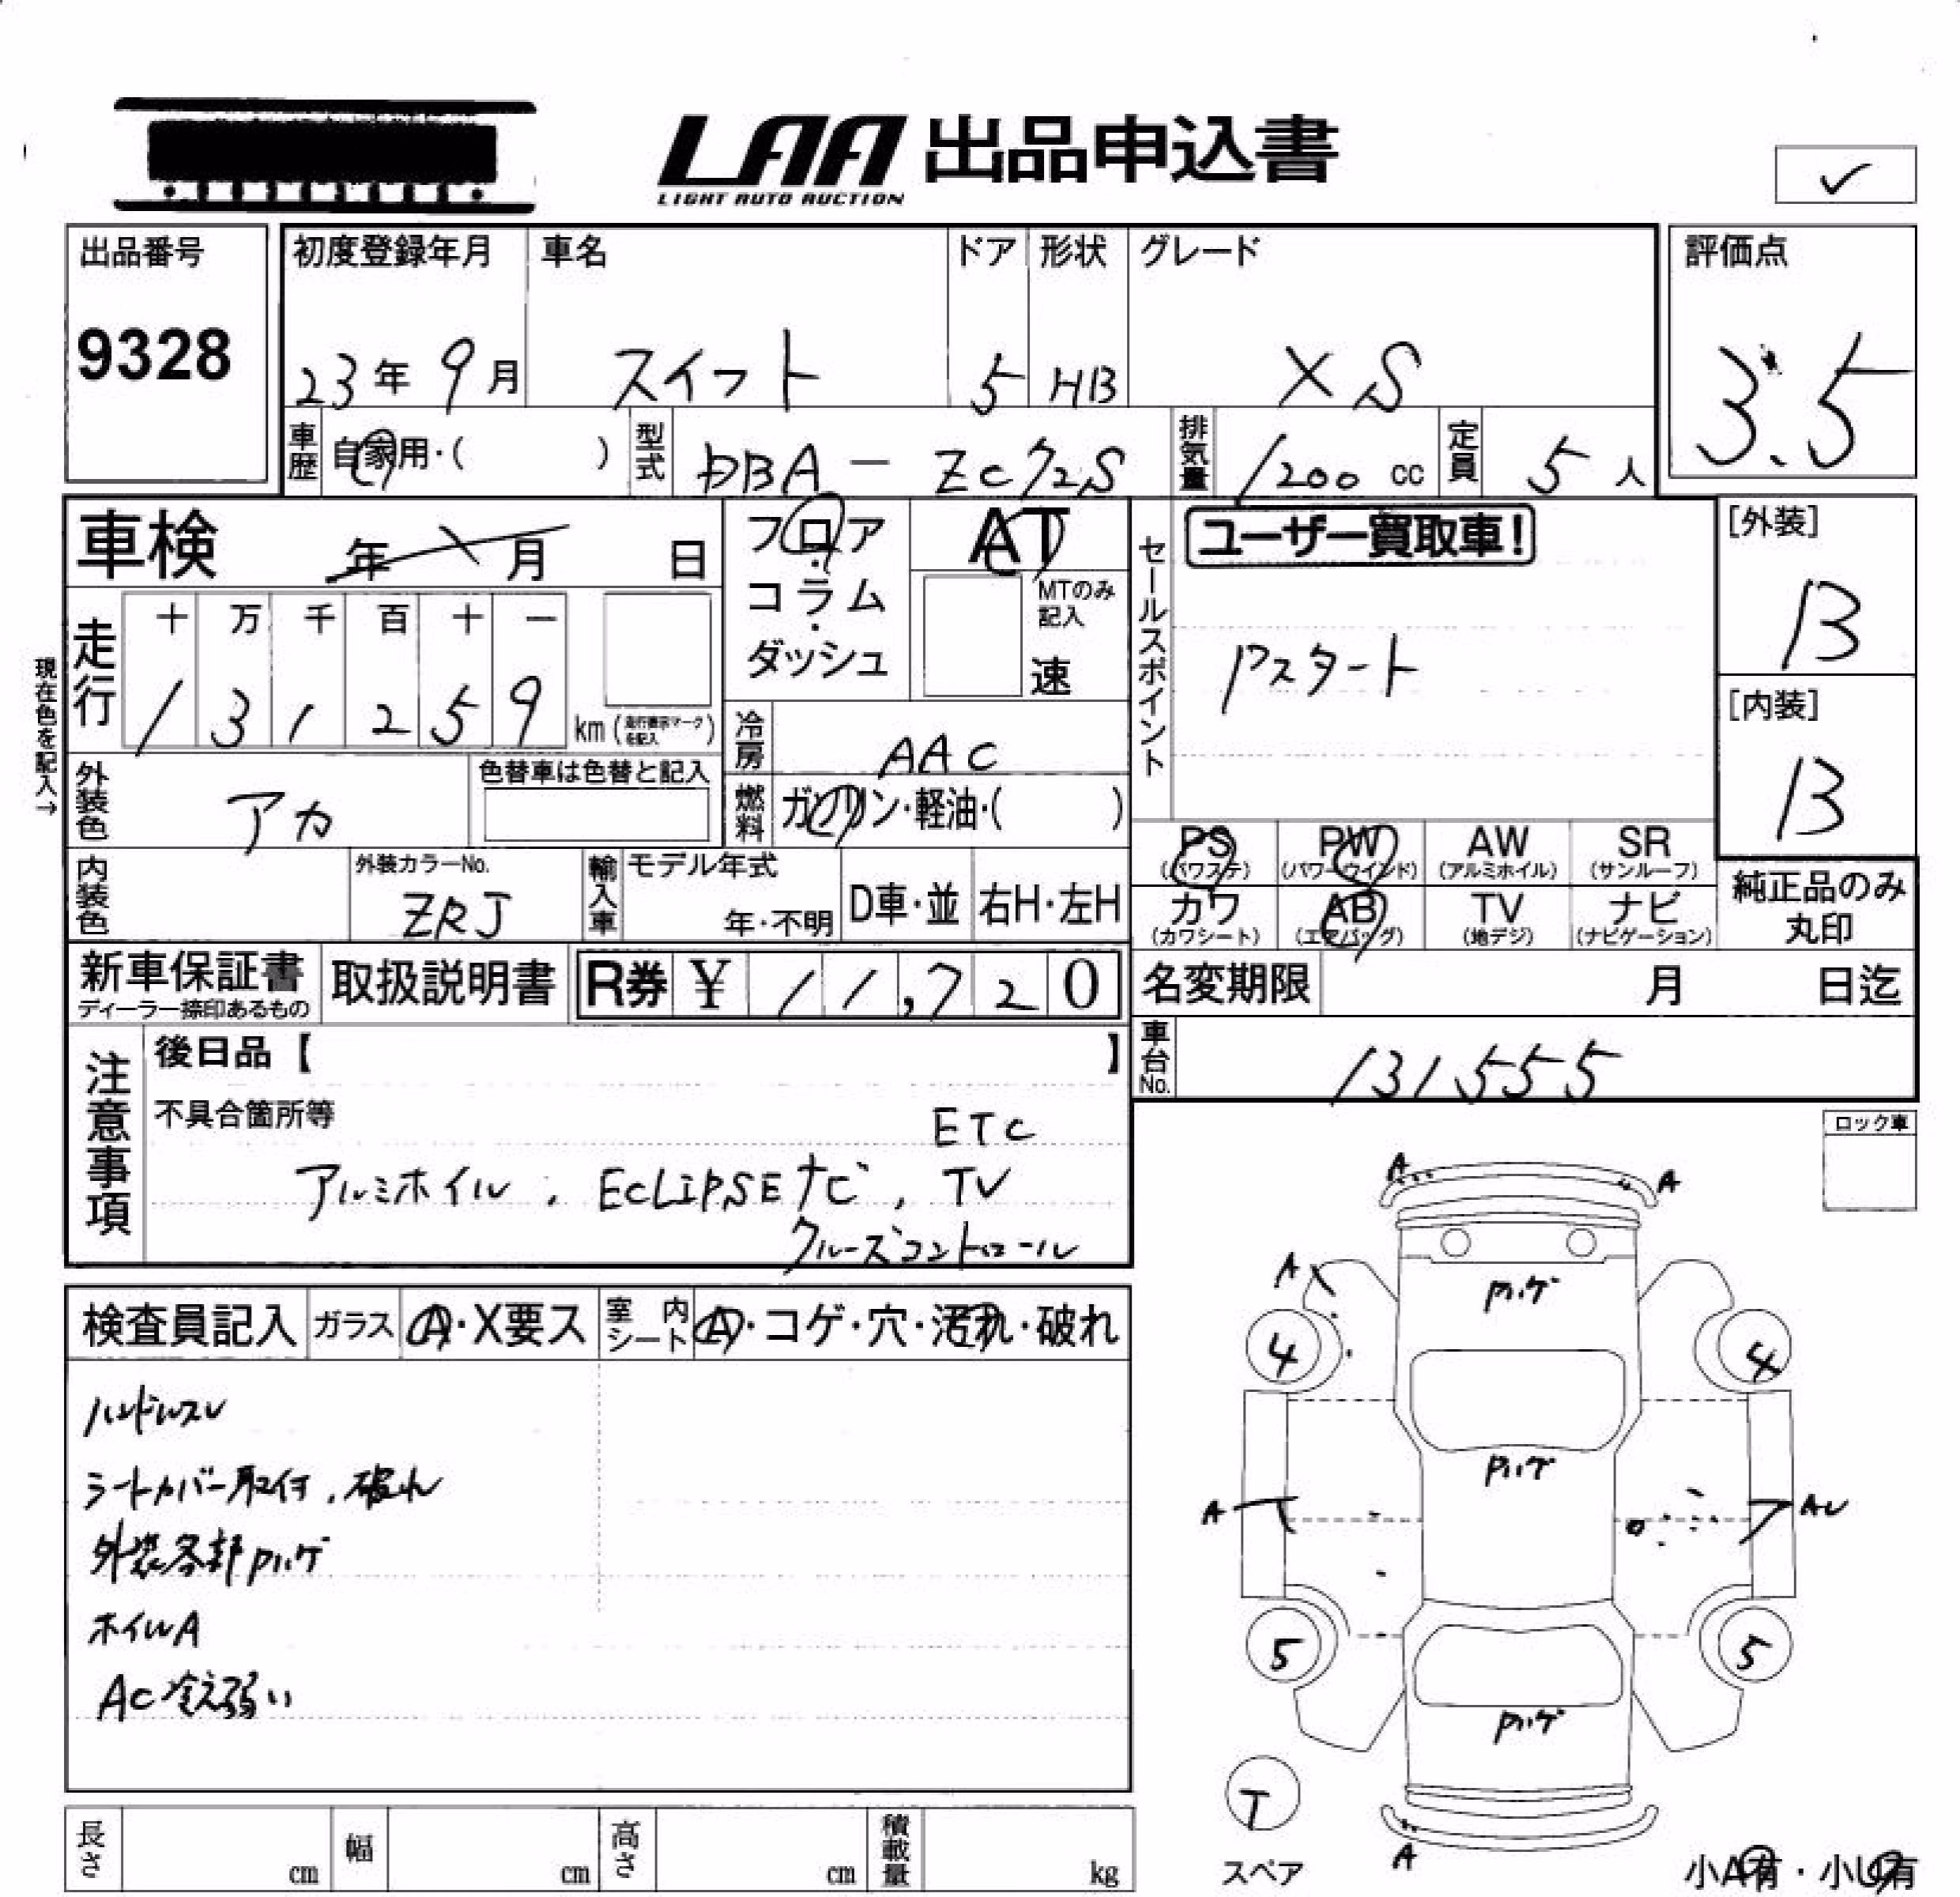 LAA 出品申込書
LIGHT AUTO AUCTION
✓
出品番号
9328
初度登録年月
23年9月
車名
スイフト
ドア
5
形状
HB
グレード
XS
評価点
3.5
車歴 自家用・( )
型式 DBA - ZC72S
排気量 1200 cc
定員 5人
車検 年 月 日
フロア・コラム・ダッシュ
AT
MTのみ記入
速
セールスポイント
ユーザー買取車!
Pスタート
[外装]
B
[内装]
B
現在色を記入→
走行
十 万 千 百 十 一
1 3 1 2 5 9
km (走行表示マークを記入)
冷房 AAC
外装色 アカ
色替車は色替と記入
燃料 ガソリン・軽油・( )
内装色
外装カラーNo.
ZRJ
輸入車
モデル年式
年・不明
D車・並
右H・左H
PS (パワステ)
PW (パワーウインド)
AW (アルミホイル)
SR (サンルーフ)
カワ (カワシート)
AB (エアバッグ)
TV (地デジ)
ナビ (ナビゲーション)
純正品のみ丸印
新車保証書
ディーラー捺印あるもの
取扱説明書
R券 ¥ 11,720
名変期限 月 日迄
車台No. 131555
注意事項
後日品【 】
不具合箇所等
ETC
アルミホイル, ECLiPSEナビ, TV
クルーズコントロール
ロック車
検査員記入
ガラス A・X要ス
室内シート A・コゲ・穴・汚れ・破れ
ハンドルスレ
シートカバー取付, 破れ
外装各部Pハゲ
ホイルA
AC冷え弱い
A A
A
Pハゲ
4 4
Pハゲ
A AU
5 5
Pハゲ
T
スペア
A
小A有・小U有
長さ cm
幅 cm
高さ cm
積載量 kg